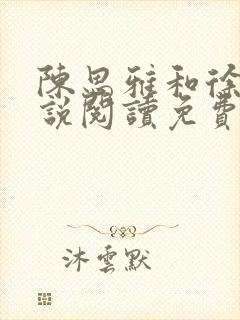 陳思雅和徐
說閱讀免費
沐雲默